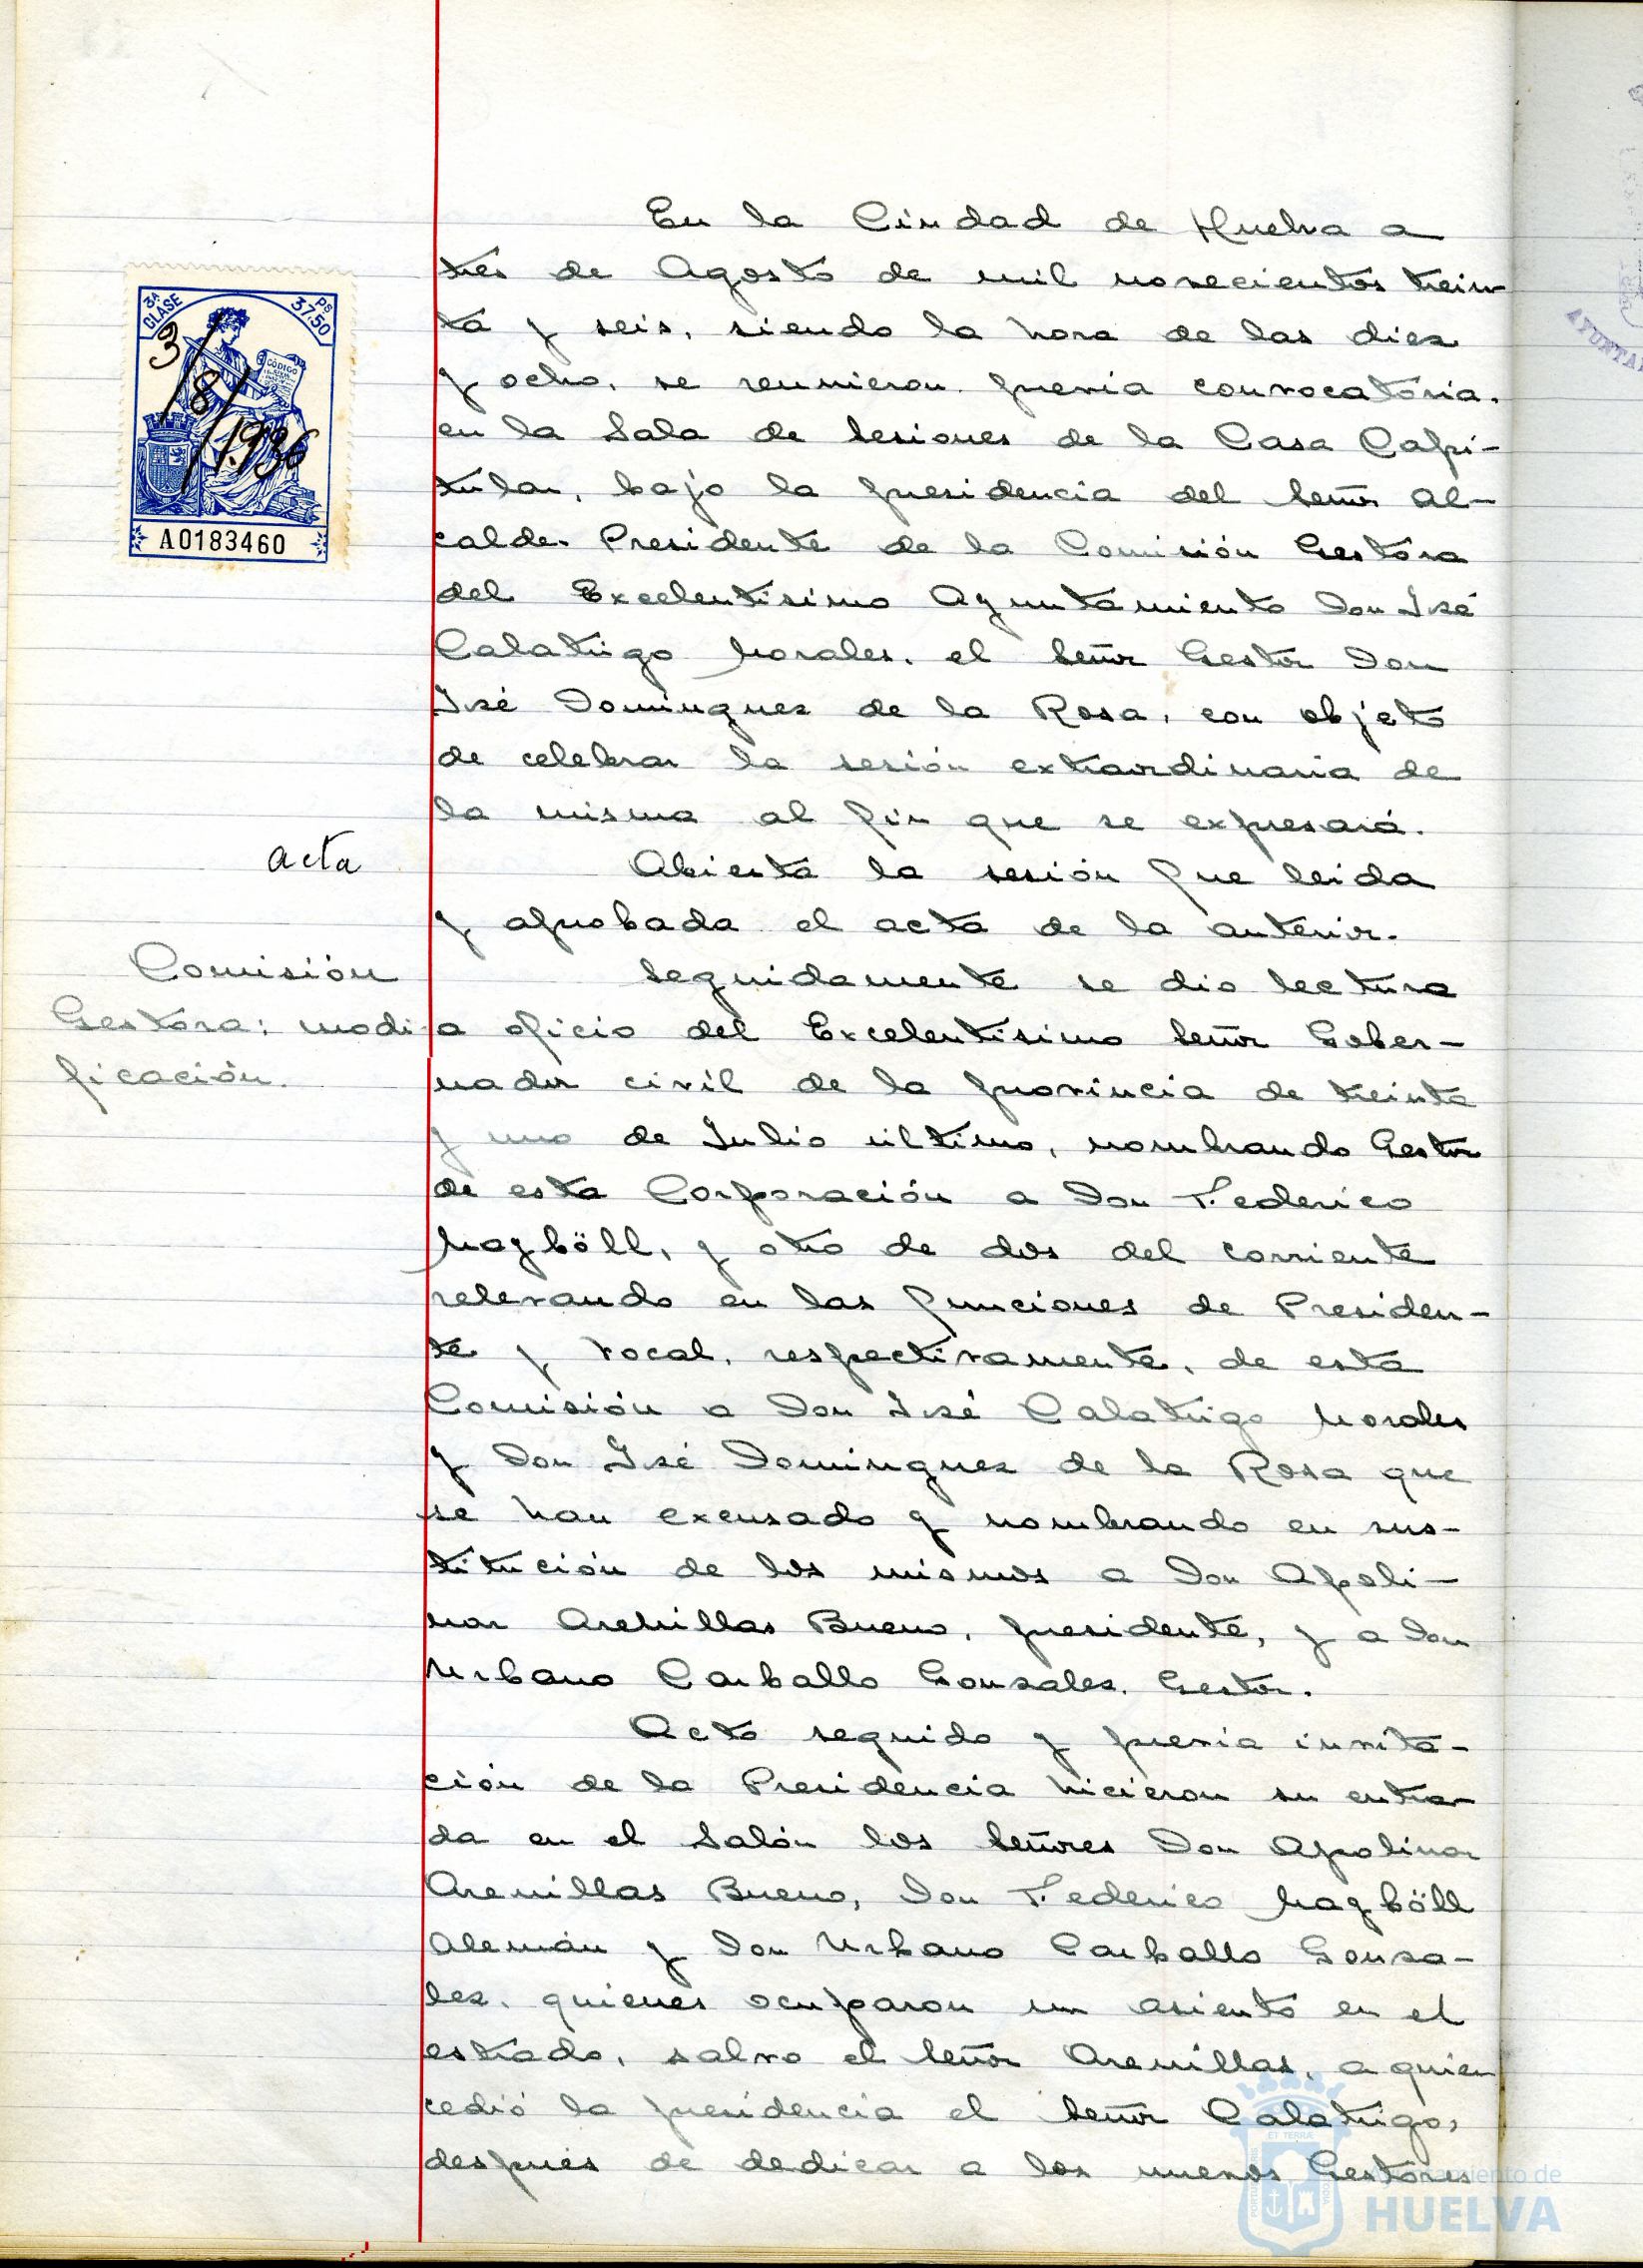 En la Ciudad de Huelva a
tres de Agosto de mil novecientos trein-
ta y seis, siendo la hora de las diez
y ocho, se reunieron, previa convocatoria,
en la Sala de Sesiones de la Casa Capi-
tular, bajo la presidencia del Señor Al-
calde-Presidente de la Comisión Gestora
del Excelentísimo Ayuntamiento Don José
Calatrigo Morales, el Señor Gestor Don
José Dominguez de la Rosa, con objeto
de celebrar la sesión extraordinaria de
la misma al fin que se expresará.
acta
Abierta la sesión fue leida
y aprobada el acta de la anterior.
Comisión
Gestora: modi-
ficación.
Seguidamente se dio lectura
a oficio del Excelentísimo Señor Gober-
nador civil de la provincia de treinta
y uno de Julio último, nombrando Gestor
de esta Corporación a Don Federico
Mayböll, y otro de dos del corriente
relevando en las funciones de Presiden-
te y Vocal, respectivamente, de esta
Comisión a Don José Calatrigo Morales
y Don José Dominguez de la Rosa que
se han excusado y nombrando en sus-
titución de los mismos a Don Apoli-
nar Arenillas Bueno, presidente, y a Don
Urbano Carballo Gonzalez, Gestor.
Acto seguido y previa invita-
ción de la Presidencia hicieron su entra-
da en el Salón los Señores Don Apolinar
Arenillas Bueno, Don Federico Mayböll
Alemán y Don Urbano Carballo Gonza-
lez, quienes ocuparon un asiento en el
estrado, salvo el Señor Arenillas, a quien
cedió la presidencia el Señor Calatrigo,
después de dedicar a los nuevos Gestores
3ª CLASE
37'50 PS
CÓDIGO
3/8/1.936
A0183460
AYUNTA
Ayuntamiento de
HUELVA